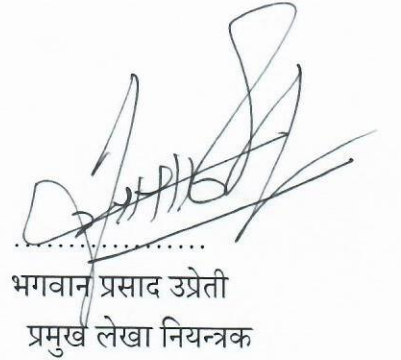 ....................
भगवान प्रसाद उप्रेती
प्रमुख लेखा नियन्त्रक